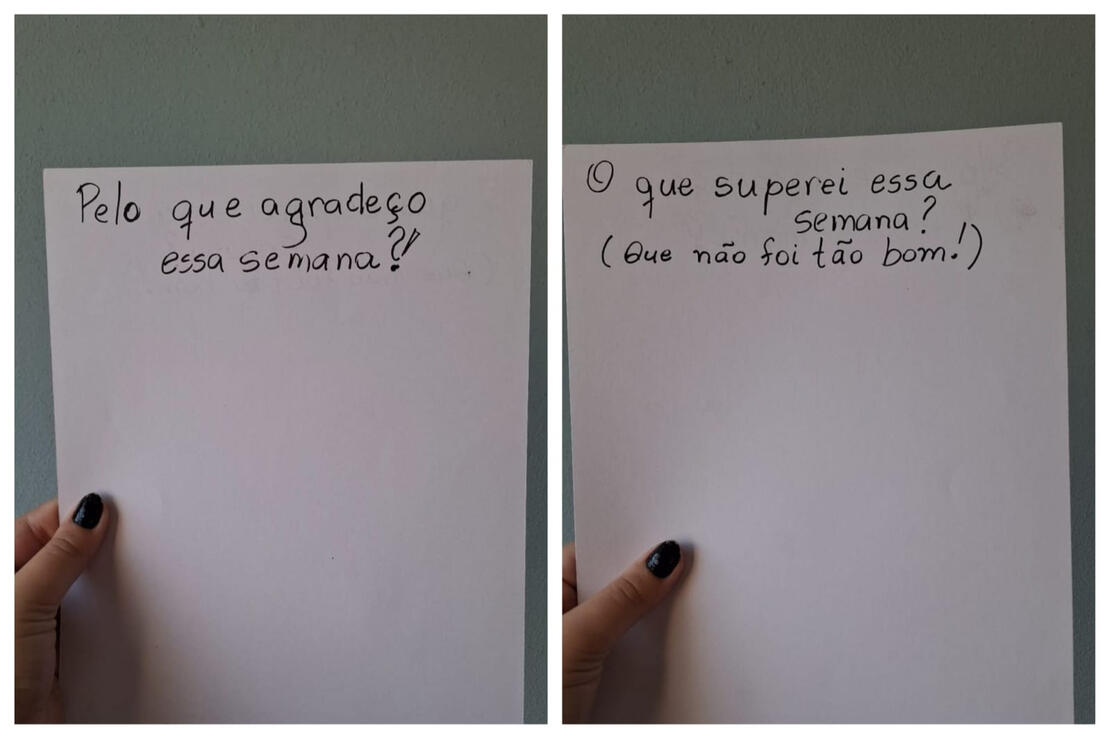 Pelo que agradeço
essa semana?!
O que superei essa
semana?
(Que não foi tão bom!)